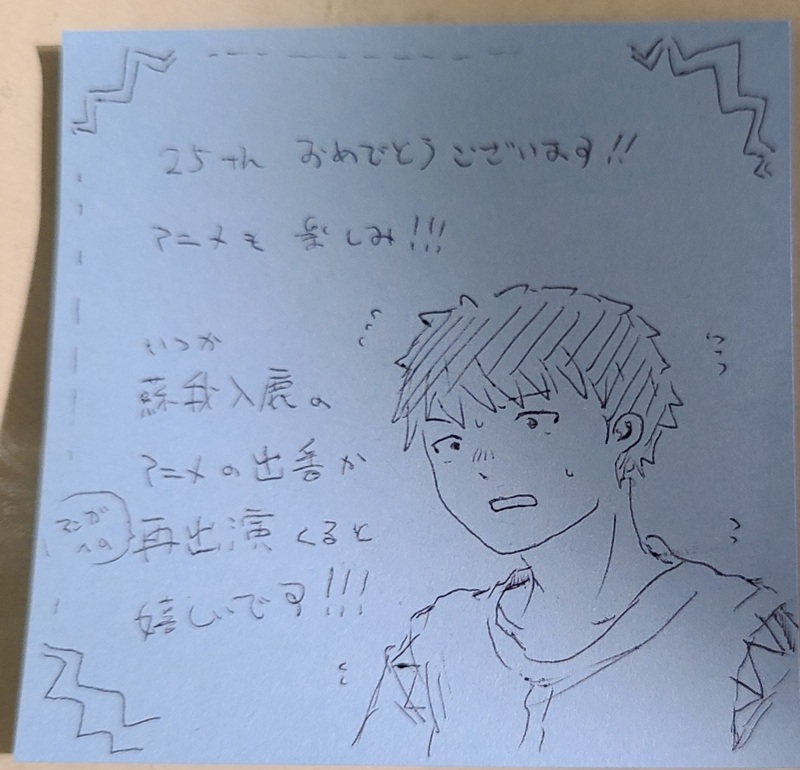 25th おめでとうございます!!
アニメも 楽しみ!!!
いつか
蘇我入鹿の
アニメの出番か
マンガへの
再出演くると
嬉しいです!!!